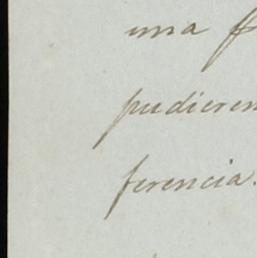 una
pudieren
ferencia.